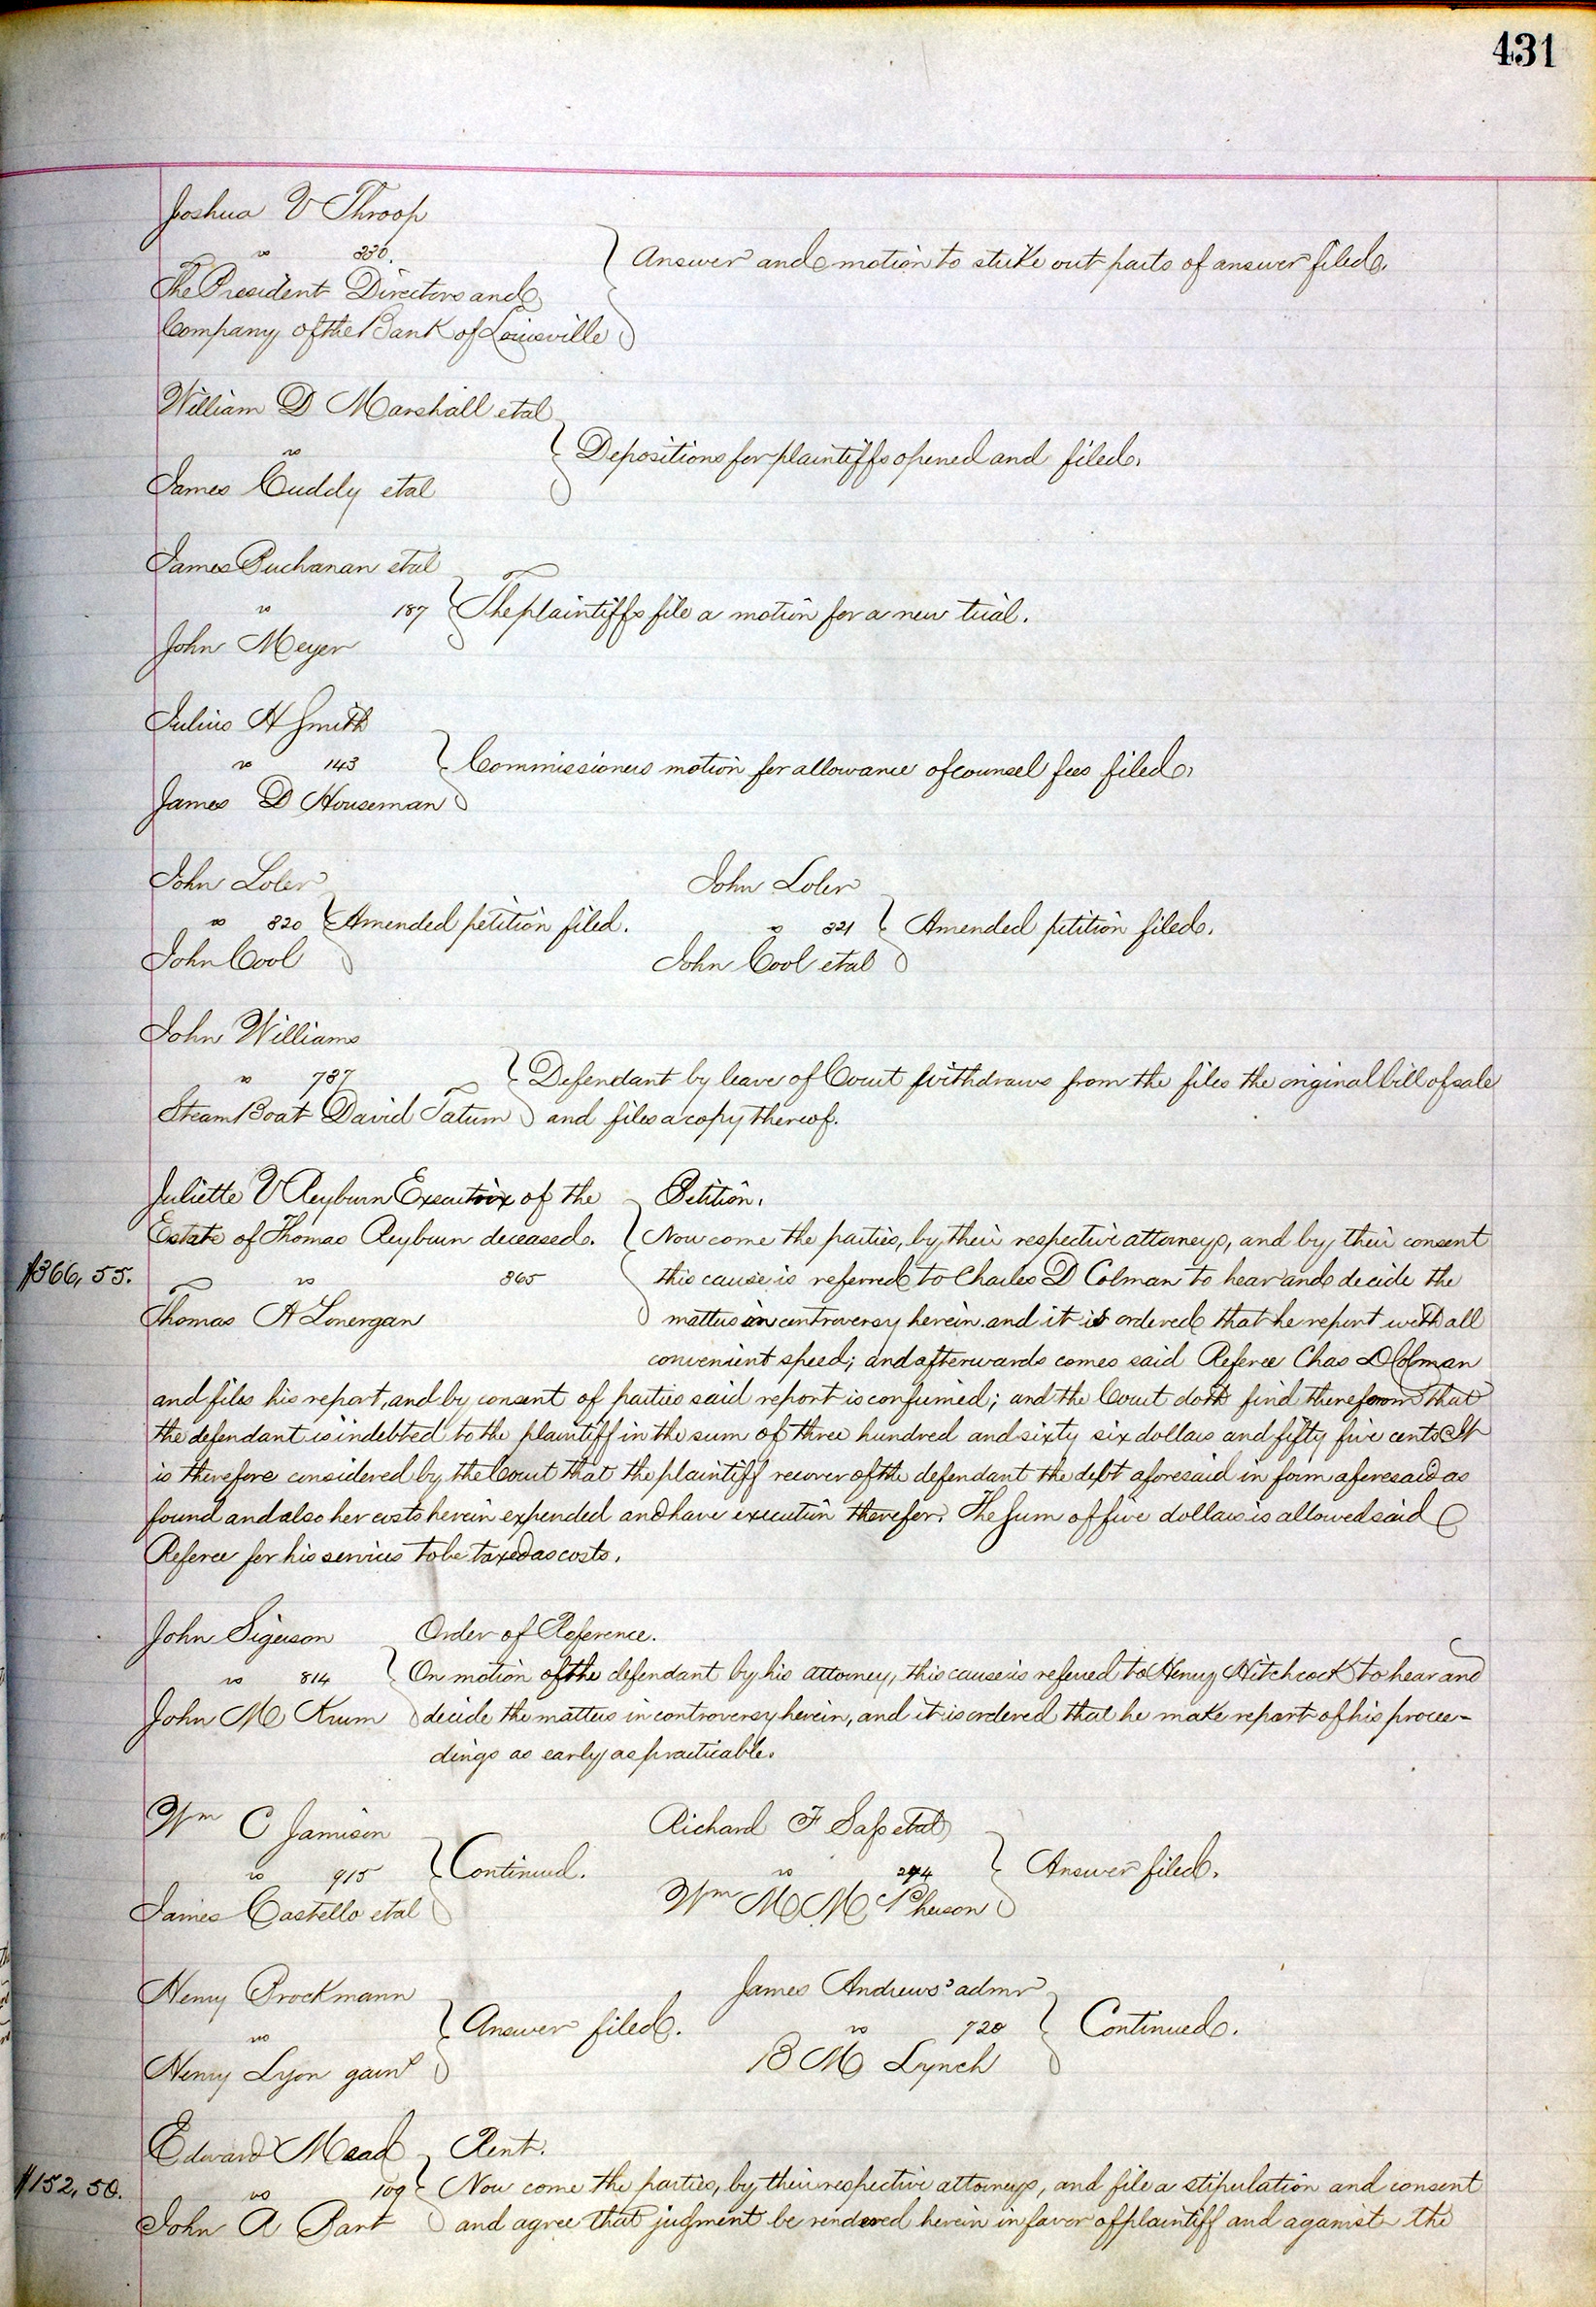 431
Joshua V Throop
vs 330.
The President Directors and
Company of the Bank of Louisville
Answer and motion to strike out parts of answer filed.
William D Marshall etal
vs
James Cuddy etal
Depositions for plaintiffs opened and filed.
James Buchanan etal
vs 187
John Meyer
The plaintiffs file a motion for a new trial.
Julius H Smith
vs 143
James D Houseman
Commissioners motion for allowance of counsel fees filed.
John Loler
vs 820
John Cool
Amended petition filed.
John Loler
vs 821
John Cool etal
Amended petition filed.
John Williams
vs 787
Steam Boat David Tatum
Defendant by leave of Court withdraws from the files the original bill of sale
and files a copy thereof.
Juliette V Reyburn Executrix of the
Estate of Thomas Reyburn deceased.
$366,55.
vs 865
Thomas A Lonergan
Petition.
Now come the parties, by their respective attorneys, and by their consent
this cause is referred to Charles D Colman to hear and decide the
matters in controversy herein. and it is ordered that he report with all
convenient speed; and afterwards comes said Referee Chas D Colman
and files his report, and by consent of parties said report is confirmed; and the Court doth find therefrom that
the defendant is indebted to the plaintiff in the sum of three hundred and sixty six dollars and fifty five cents It
is therefore considered by the Court that the plaintiff recover of the defendant the debt aforesaid in form aforesaid as
found and also her costs herein expended and have execution therefor. The sum of five dollars is allowed said
Referee for his services to be taxed as costs.
John Sigerson
vs 814
John M Krum
Order of Reference.
On motion of the defendant by his attorney, this cause is referred to Henry Hitchcock to hear and
decide the matters in controversy herein, and it is ordered that he make report of his procee-
dings as early as practicable.
Wm C Jamison
vs 915
James Castello etal
Continued.
Richard F Sass etal
vs
Wm M McPherson
Answer filed.
Henry Brockmann
vs
Henry Lyon garnd
Answer filed.
James Andrews' admr
vs 720
B M Lynch
Continued.
Edward Mead
$152,50.
vs 109
John A Bant
Rent.
Now come the parties, by their respective attorneys, and file a stipulation and consent
and agree that judgment be rendered herein in favor of plaintiff and against the